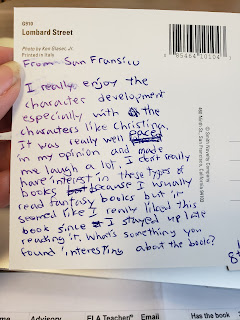 G910
Lombard Street
Photo by Ken Glaser, Jr.
Printed in Italy
85464 10104
From San Fransico
I really enjoy the
character development
especially with the
characters like Christina.
It was really well paced
in my opinion and made
me laugh a lot. I don't really
have interest in these types of
books because I usually
read fantasy books but it
seemed like I really liked this
book since I stayed up late
reading it. What's something you
found interesting about the book?
Advisory ELA Teacher Email Has the book